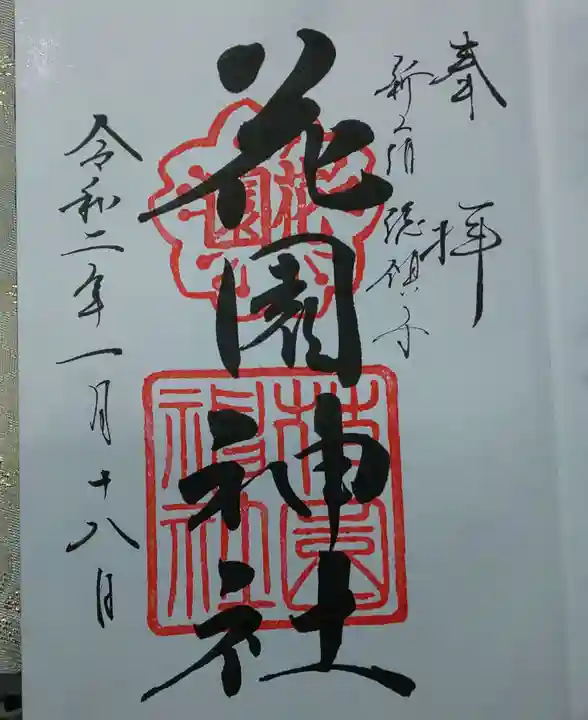 奉拝
新宿総鎮守
花園神社
花園
花園神社
令和二年一月十八日